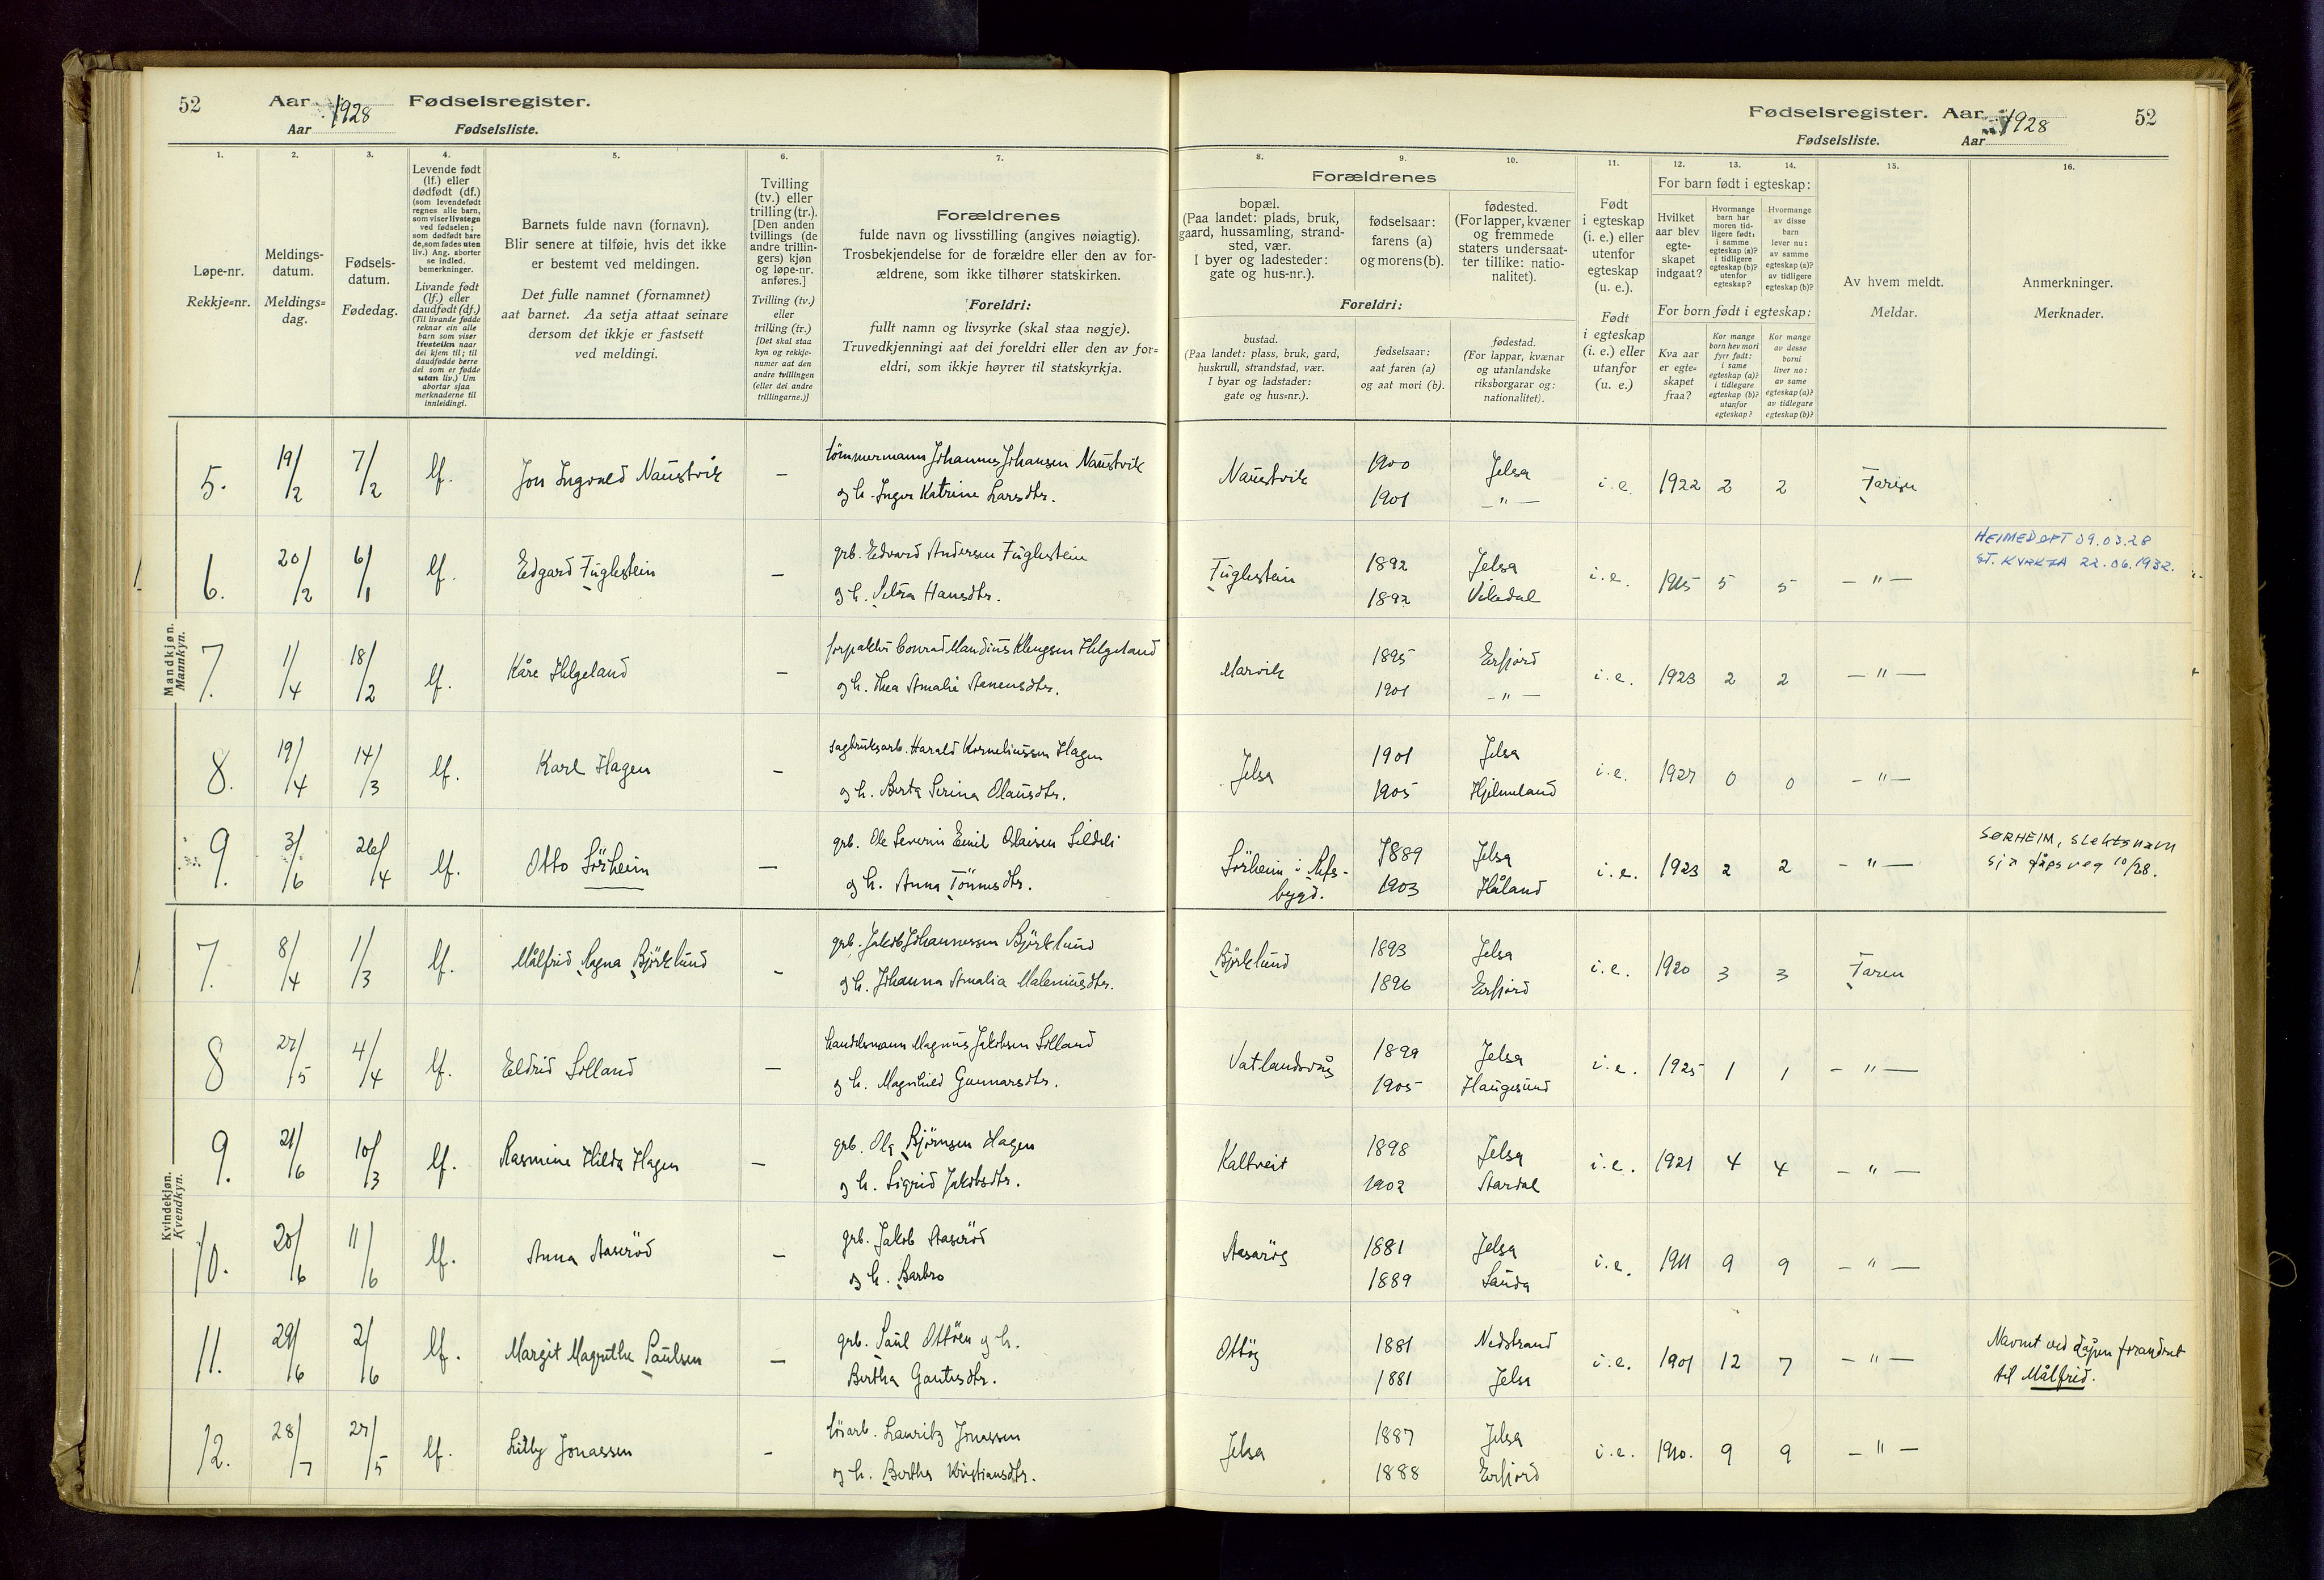 52 Aar 1928 Fødselsregister.
Aar Fødselsliste.
Fødselsregister. Aar 1928 52
Fødselsliste. Aar
1. 2. 3. 4. 5. 6. 7. 8. 9. 10. 11. 12. 13. 14. 15. 16.
Løpe-nr.
Rekkje=nr.
Meldings-
datum.
Meldings=
dag.
Fødsels-
datum.
Fødedag.
Levende født
(lf.) eller
dødfødt (df.)
(som levendefødt
regnes alle barn,
som viser livstegn
ved fødselen;
som dødfødt bare
de, som fødes uten
liv.) Ang. aborter
se indled.
bemerkninger.
Livande født
(lf.) eller
daudfødt (df.)
(Til livande fødde
reknar ein alle
barn som viser
livsteikn naar
dei kjem til; til
daudfødde berre
dei som er fødde
utan liv.) Um
abortar sjaa
merknaderne til
innleidingi.
Barnets fulde navn (fornavn).
Blir senere at tilføie, hvis det ikke
er bestemt ved meldingen.
Det fulle namnet (fornamnet)
aat barnet. Aa setja attaat seinare
dersom det ikkje er fastsett
ved meldingi.
Tvilling
(tv.) eller
trilling (tr.).
[Den anden
tvillings (de
andre trillin-
gers) kjøn
og løpe-nr.
anføres.]
Tvilling (tv.)
eller
trilling (tr.)
[Det skal staa
kyn og rekkje-
numer aat den
andre tvillingen
(eller dei andre
trillingarne.)]
Forældrenes
fulde navn og livsstilling (angives nøiagtig).
Trosbekjendelse for de forældre eller den av for-
ældrene, som ikke tilhører statskirken.
Foreldri:
fullt namn og livsyrke (skal staa nøgje).
Truvedkjenningi aat dei foreldri eller den av for=
eldri, som ikkje høyrer til statskyrkja.
Forældrenes
bopæl.
(Paa landet: plads, bruk,
gaard, hussamling, strand-
sted, vær.
I byer og ladesteder:
gate og hus-nr.).
fødselsaar:
farens (a)
og morens (b).
fødested.
(For lapper, kvæner
og fremmede
staters undersaat-
ter tillike: natio-
nalitet).
Foreldri:
bustad.
(Paa landet: plass, bruk, gard,
huskrull, strandstad, vær.
I byar og ladstader:
gate og hus=nr.).
fødselsaar:
aat faren (a)
og aat mori (b).
fødestad.
(For lappar, kvænar
og utanlandske
riksborgarar og:
nationalitet).
Født
i egteskap
(i. e.) eller
utenfor
egteskap
(u. e.).
Født
i egteskap
(i. e.) eller
utanfor
(u. e.)
For barn født i egteskap:
Hvilket
aar blev
egte-
skapet
indgaat?
Hvormange
barn har
moren tid-
ligere født:
i samme
egteskap (a)?
i tidligere
egteskap (b)?
utenfor
egteskap?
Hvormange
av disse
barn
lever nu:
av samme
egteskap (a)?
av tidligere
egteskap (b)?
For born født i egteskap:
Kva aar
er egte=
skapet
fraa?
Kor mange
born hev mori
fyrr født:
i same
egteskap (a)?
i tidlegare
egteskap (b)?
utanfor
egteskap?
Kor mange
av desse
borni
liver no:
av same
egteskap (a)?
av tidlegare
egteskap (b)?
Av hvem meldt.
Meldar.
Anmerkninger.
Merknader.
Mandkjøn.
Mannkyn.
5. 19/2 7/2 lf. Jon Ingvald Naustvik — tømmermann Johannes Johansen Naustvik Naustvik 1900 Jelsa i.e. 1922 2 2 Faren
og h. Inger Katrine Larsdtr. 1901 —"—
6. 20/2 6/1 lf. Edgard Fuglestein — grb. Edvard Andersen Fuglestein Fuglestein 1892 Jelsa i.e. 1915 5 5 —"— HEIMEDØPT 09.03.28
og h. Hansdtr. 1892 Vikedal ST. KYRKJA 22.06.1932.
7. 1/4 18/2 lf. Kåre Helgeland — forpakter Conrad Mandius Helgeland Marvik 1895 Erfjord i.e. 1923 2 2 —"—
og h. Thea Amalie 1901 —"—
8. 19/4 14/3 lf. Karl Hagen — sagbruksarb. Harald Korneliussen Hagen Jelsa 1901 Jelsa i.e. 1927 0 0 —"—
og h. Berta Serina Olausdtr. 1905 Hjelmeland
9. 3/6 26/4 lf. Otto Sörheim — grb. Ole Severin Emil Sörheim i 1889 Jelsa i.e. 1923 2 2 —"— SØRHEIM, slektsnavn
og h. Anna Tönnesdtr. bygd. 1903 Håland sjå dåpsreg 10/28.
Kvindekjøn.
Kvendkyn.
7. 8/4 1/3 lf. Målfrid Ragna Björklund — grb. Jakob Johannessen Björklund Björklund 1893 Jelsa i.e. 1920 3 3 Faren
og h. Johanna Amalia Maleniusdtr. 1896 Erfjord
8 27/5 4/4 lf. Eldrid Lölland — handelsmann Magnus Jakobsen Lölland Vatlandsvåg 1899 Jelsa i.e. 1925 1 1 —"—
og h. Magnhild Gunnarsdtr. 1905 Haugesund
9. 21/6 10/3 lf. Rasmine Hilda Hagen — grb. Ola Björnsen Hagen Kaltveit 1898 Jelsa i.e. 1921 4 4 —"—
og h. Sigrid Jakobsdtr. 1902 Aardal
10. 20/6 11/6 lf. Anna Aaseröd — grb. Jakob Aaseröd 1881 Jelsa i.e. 1911 9 9 —"—
og h. Barbro 1889 Sauda
11. 29/6 2/6 lf. Margit Magnthe Paulsen — grb. Paul Ottöen og h. Ottöy 1881 Nedstrand i.e. 1901 12 7 —"— Navnet ved dåpen forandret
Bertha Gautesdtr. 1881 Jelsa til Målfrid.
12. 28/7 27/5 lf. Lilly Jonassen — Lauritz Jonassen Jelsa 1887 Jelsa i.e. 1910. 9 9 —"—
og h. Bertha Kristiansdtr. 1888 Erfjord